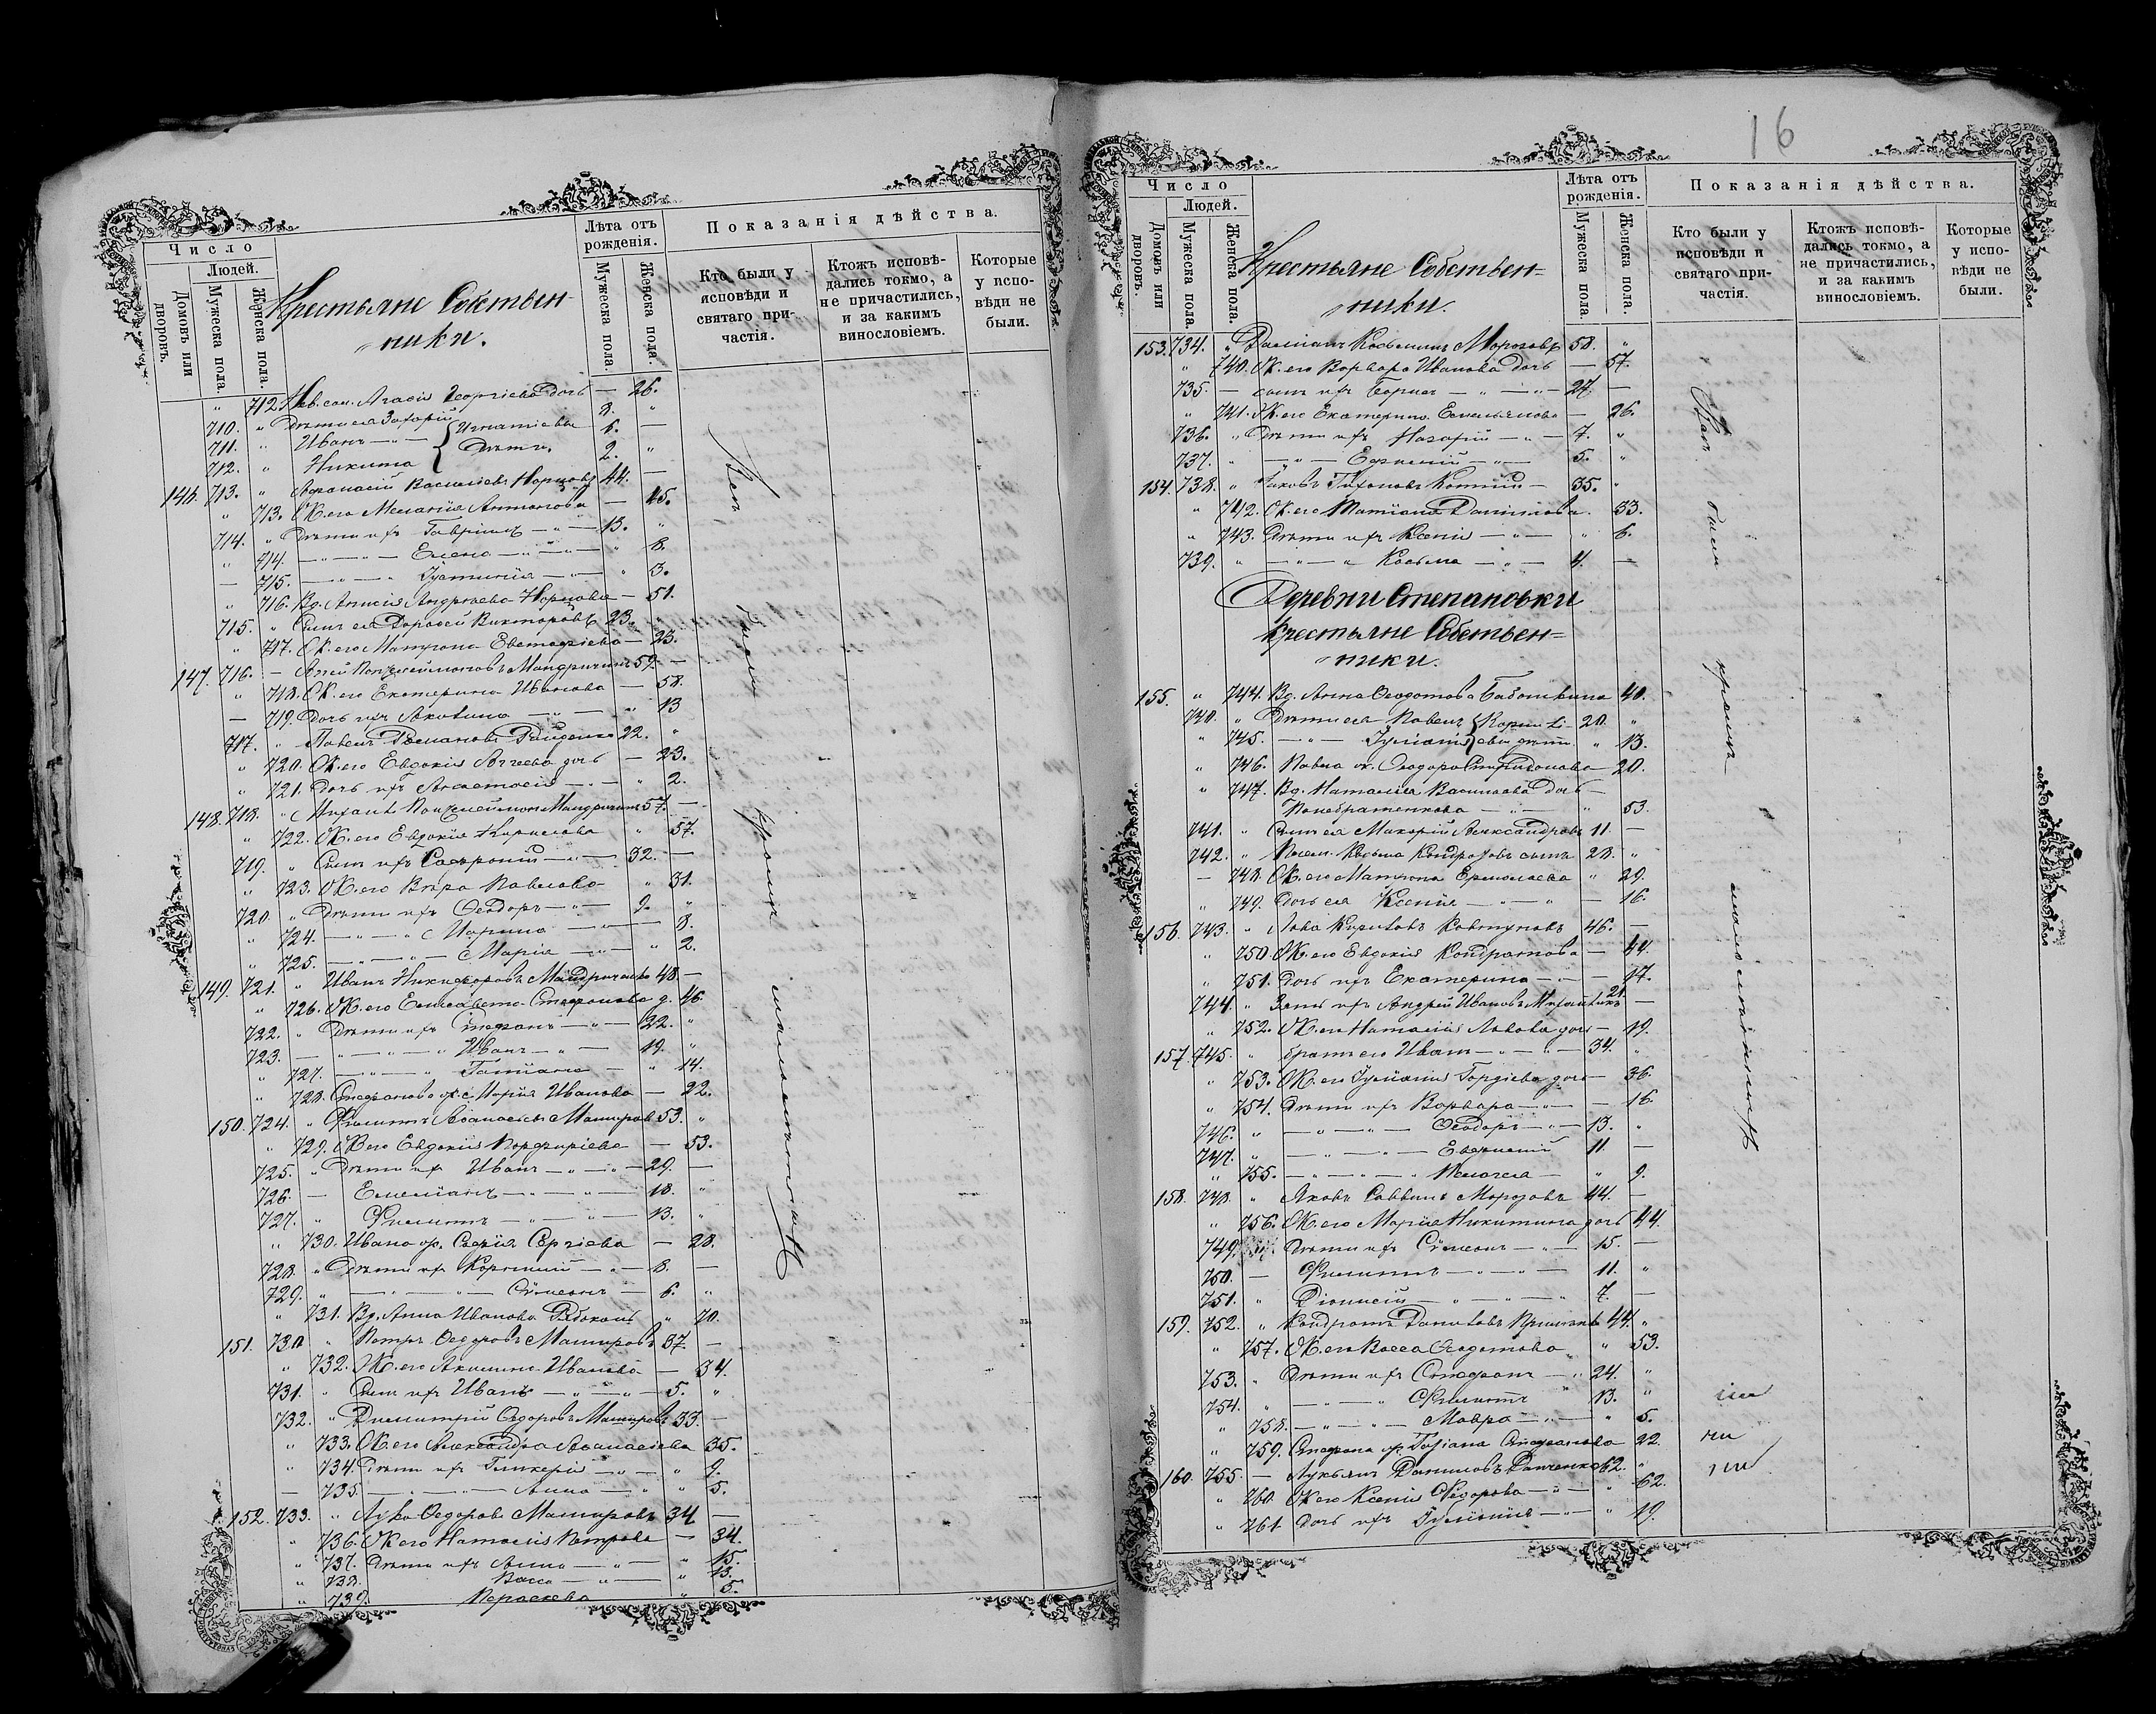 Число
Людей.
Домовъ или дворовъ.
Мужеска пола.
Женска пола.
Крестьяне Собствен-
ники.
Лѣта отъ рожденія.
Мужеска пола.
Женска пола.
Показанія дѣйства.
Кто были у исповѣди и святаго причастія.
Ктожъ исповѣдались токмо, а не причастились, и за какимъ винословіемъ.
Которые у исповѣди не были.
" 712. Агафія Георгіева дочь — 26.
710. " Дѣти ея Захарій 9. "
711. " Иванъ — " — Игнатіевы 6. —
712. " Никита Дѣти. 2. "
146. 713. " Аѳанасій Васильевъ 44. —
" 713. Ж. его Меланія Антонова — 45.
714. " Дѣти ихъ Гавріилъ — " — 13. "
" 714. — " — " — Елена — " — " 8.
— 715. — " — " Іустинія — " — " 3.
" 716. Вд. Анисія Андреева — 51.
715. " Сынъ ея Дороѳей Викторовъ 23.
" 717. Ж. его Матрона Евстафіева — 23.
147. 716. — 59. —
" 718. Ж. его Екатерина Иванова — 58.
— 719. Дочь ихъ Акилина — " — " 13
717. " Павелъ Романовъ 22. "
" 720. Ж. его Евдокія дочь — 23.
" 721. Дочь ихъ Анастасія — " 2.
148. 718. " Михаилъ 57. —
" 722. Ж. его Евдокія Кирилова " 57.
719. " Сынъ ихъ Софроній — " — 32. —
" 723. Ж. его Вѣра Павлова " 31.
720 " Дѣти ихъ Ѳеодоръ — " — 9. "
" 724. — " — " Марина — " — 8.
" 725. — " — " — Марія — " — " 2.
149. 721. " Иванъ Никифоровъ 48. —
" 726. Ж. его Елисавета Стефанова д. 46.
722. " Дѣти ихъ Стефанъ — " — 22. "
723. — " — " — " Иванъ — " — 19. "
" 727. — " — " Татіана — " 14.
" 728. Стефанова ж. Марія Иванова — 22.
150. 724. " Филиппъ Аѳанасьевъ Машировъ 53. "
" 729. Ж. его Евдокія Порфиріева — 53.
725. " Дѣти ихъ Иванъ — " — " — 29. —
726. — Емеліанъ — " — " — 18. "
727. " Филиппъ — " — " — 13. "
" 730. Ивана ж. Софія Сергіева — 28.
728. " Дѣти ихъ Корнилій — " — 8. —
729. " — " — " — Сѵмеонъ — 6. "
" 731. Вд. Анна Иванова " 70.
151. 730 " Петръ Ѳеодоровъ Машировъ 37. —
" 732. Ж. его Акилина Иванова — 34.
731. " Сынъ ихъ Иванъ — " — " — 5. "
732. " Димитрій Ѳеодоровъ Машировъ 33. —
" 733. Ж. его Александра Аѳанасіева 35.
" 734. Дѣти ихъ Гликерія — " — " 9.
— 735. — " — " — Анна — " " 5.
152. 733. " Лука Ѳедоровъ Машировъ 34 —
" 736. Ж. его Наталія Петрова — 34.
" 737. Дѣти ихъ Анна — " — " 15.
" 738. Васса — " — " 13.
" 739. Параскева " 5.
Всѣ
были
кромѣ
малолѣтнихъ
16
Число
Людей.
Домовъ или дворовъ.
Мужеска пола.
Женска пола.
Крестьяне Собствен=
ники.
Лѣта отъ рожденія.
Мужеска пола.
Женска пола.
Показанія дѣйства.
Кто были у исповѣди и святаго причастія.
Ктожъ исповѣдались токмо, а не причастились, и за какимъ винословіемъ.
Которые у исповѣди не были.
153. 734. " Даміанъ Косьминъ Морозовъ 58. "
" 740. Ж. его Варвара Иванова дочь — 57.
735. — сынъ ихъ — " — " — 27. —
" 741. Ж. его Екатерина Емельянова — 26.
736. " Дѣти ихъ Назарій — " — 7. "
737. " — " — Ефимій — " — 5. "
154. 738. " Яковъ 35. "
" 742. Ж. его Татіана Данилова 33.
" 743. Дѣти ихъ Ксенія — " — " 6.
739. " — " — " Косьма — " — 4. —
Деревни Степановки
крестьяне Собствен=
ники.
155. " 744. Вд. Анна Ѳеодотова 40.
740. " Дѣти ея Павелъ 20. "
" 745. — " — Іуліанія " 13.
" 746. Павла ж. Ѳеодора Спиридонова — 20.
" 747. Вд. Наталія Васильева дочь —
Понебратенкова — " — " 53.
741. " Сынъ ея Макарій Александровъ 11. —
742. " Косьма Кондратовъ сынъ 28. "
— 748. Ж. его Матрона Ермолаева " 29.
" 749. Дочь ея Ксенія — " — " — 16.
156. 743. " Ковтуновъ 46. —
" 750. Ж. его Евдокія Кондратова — 44.
" 751. Дочь ихъ Екатерина — " — 17.
744. " Зять ихъ Андрей Ивановъ 21. —
" 752. Ж. его Наталія Львова дочь — 19.
157. 745. " братъ его Иванъ — " — " — 34. "
" 753. Ж. его Іуліанія Гордіева дочь — 36.
" 754. Дѣти ихъ Варвара — " — — 16.
746. " — " — " — Ѳеодоръ — " — 13. "
747. " — " — " — Евфимій 11. —
" 755. — " — " — " Пелагея — " 9.
158. 748. " Яковъ Саввинъ Морозовъ 44. —
" 756. Ж. его Марія Никитина дочь 44.
749. " Дѣти ихъ Сѵмеонъ — " — 15. —
750. — Филиппъ — " — " — 11. "
751. " Діонисій — " — " — 7. —
159. 752. " Кондратъ 44. "
" 757. Ж. его Васса Ѳеодотова " 53.
753. " Дѣти ихъ Стефанъ — " 24. "
754. " — " — " Филиппъ 13. "
" 758. — " — " — Мавра — " — " 5.
" 759. Стефана ж. Татіана Стефанова 22.
160. 755. — Лукьянъ Даниловъ 62. "
" 760 Ж. его Ксенія Ѳедорова — " — " 62.
" 761 Дочь ихъ Іуліанія — " — " 19.
были
кромѣ
малолѣтнихъ